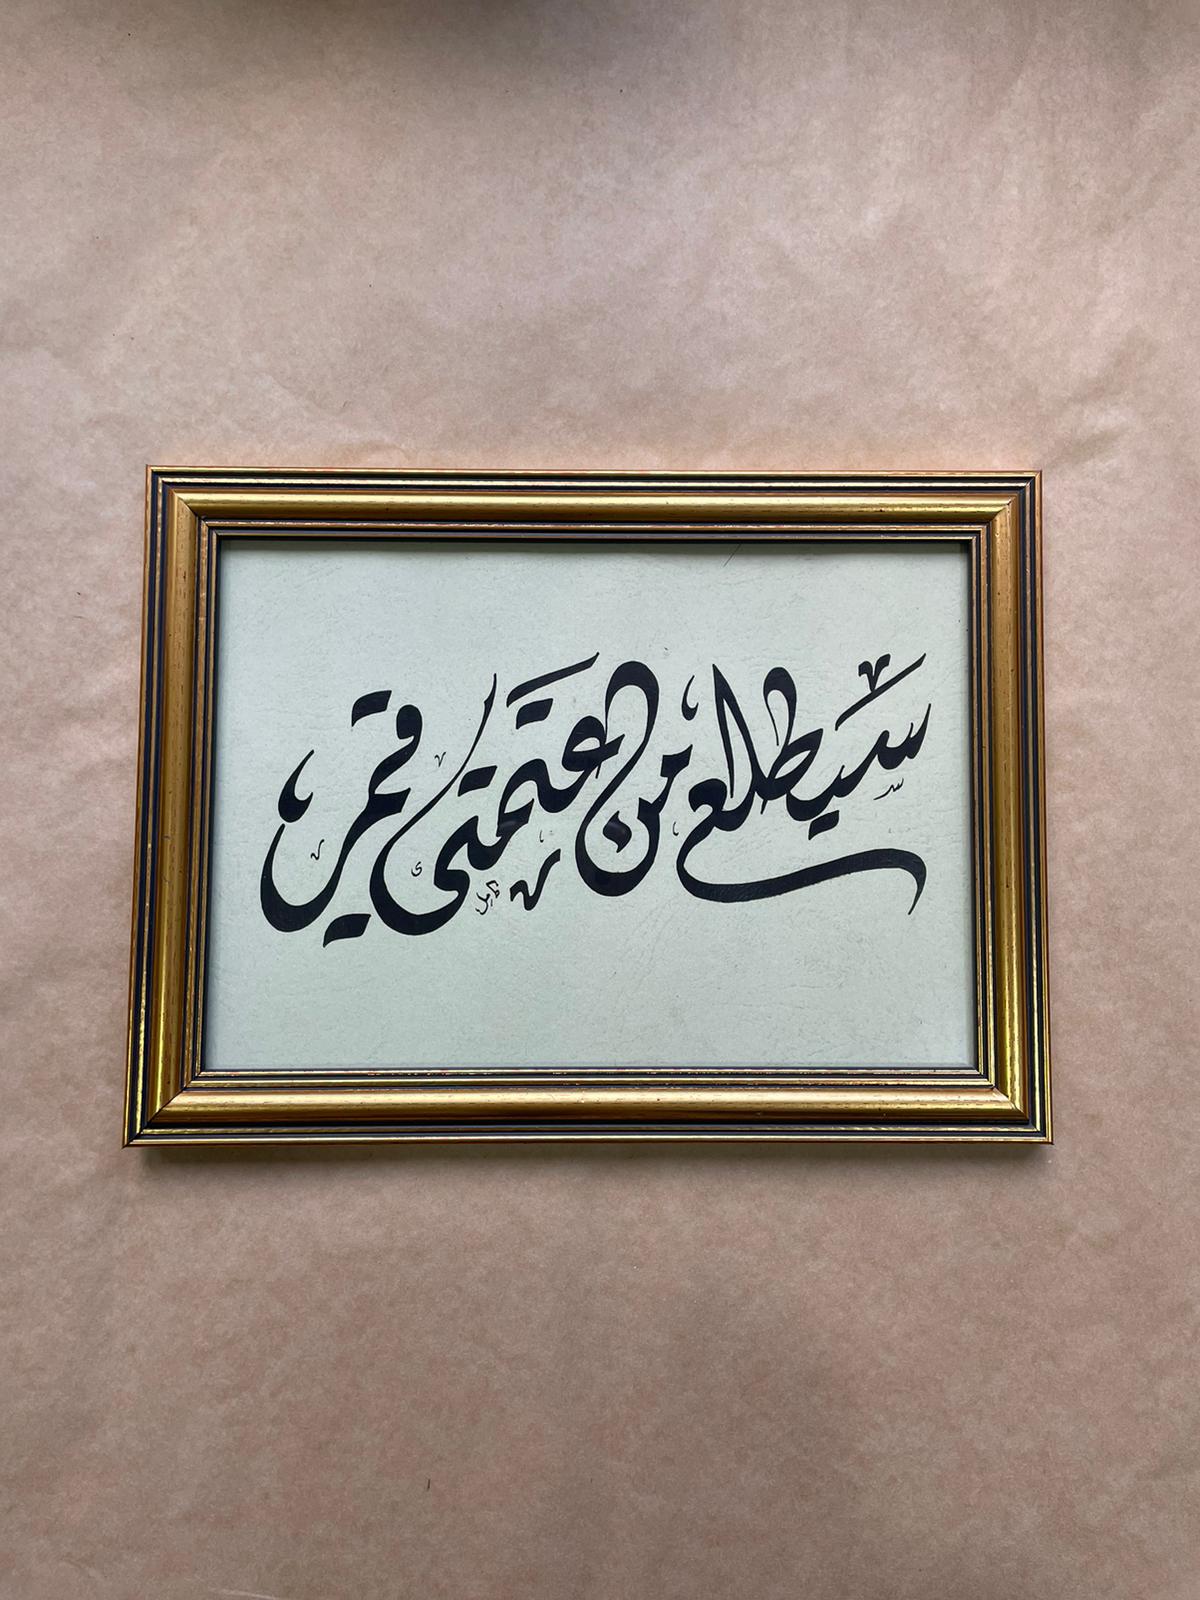 سيطلع من عتمتي قمر